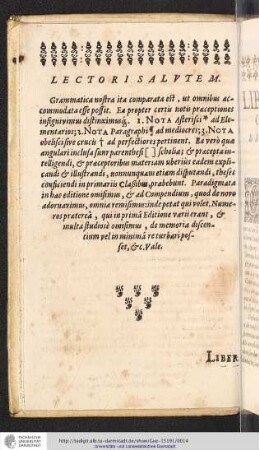 LECTORI SALVTEM.
Grammatica nostra ita comparata est, ut omnibus ac
commodata esse possit. Ea propter certis notis præceptiones
insignivimus distinximusq́;. 1. NOTA Asterisci * ad Ele-
mentarios; 2. NOTA Paragraphi ¶ ad mediocres; 3. NOTA
obelisci sive crucis † ad perfectiores pertinent. Ea verò quæ
angulari inclusa sunt parenthesi [ ] scholia; & præcepta in-
telligendi, & præceptoribus materiam uberius eadem expli-
candi & illustrandi, nonnunquam etiam disputandi, theses
conficiendi in primariis Classibus, præbebunt. Paradigmata
in hac editione omisimus, & ad Compendium, quod de novo
adornavimus, omnia remisimus: inde petat qui volet. Nume-
ros prætereà, qui in primâ Editione varii erant, &
multa studiosè omisimus, de memoria discen-
tium vel in minimâ re turbari pos-
set, &c. Vale.
LIBER
http://tudigit.ulb.tu-darmstadt.de/show/Gue-15191/0014
Universitäts- und Landesbibliothek Darmstadt